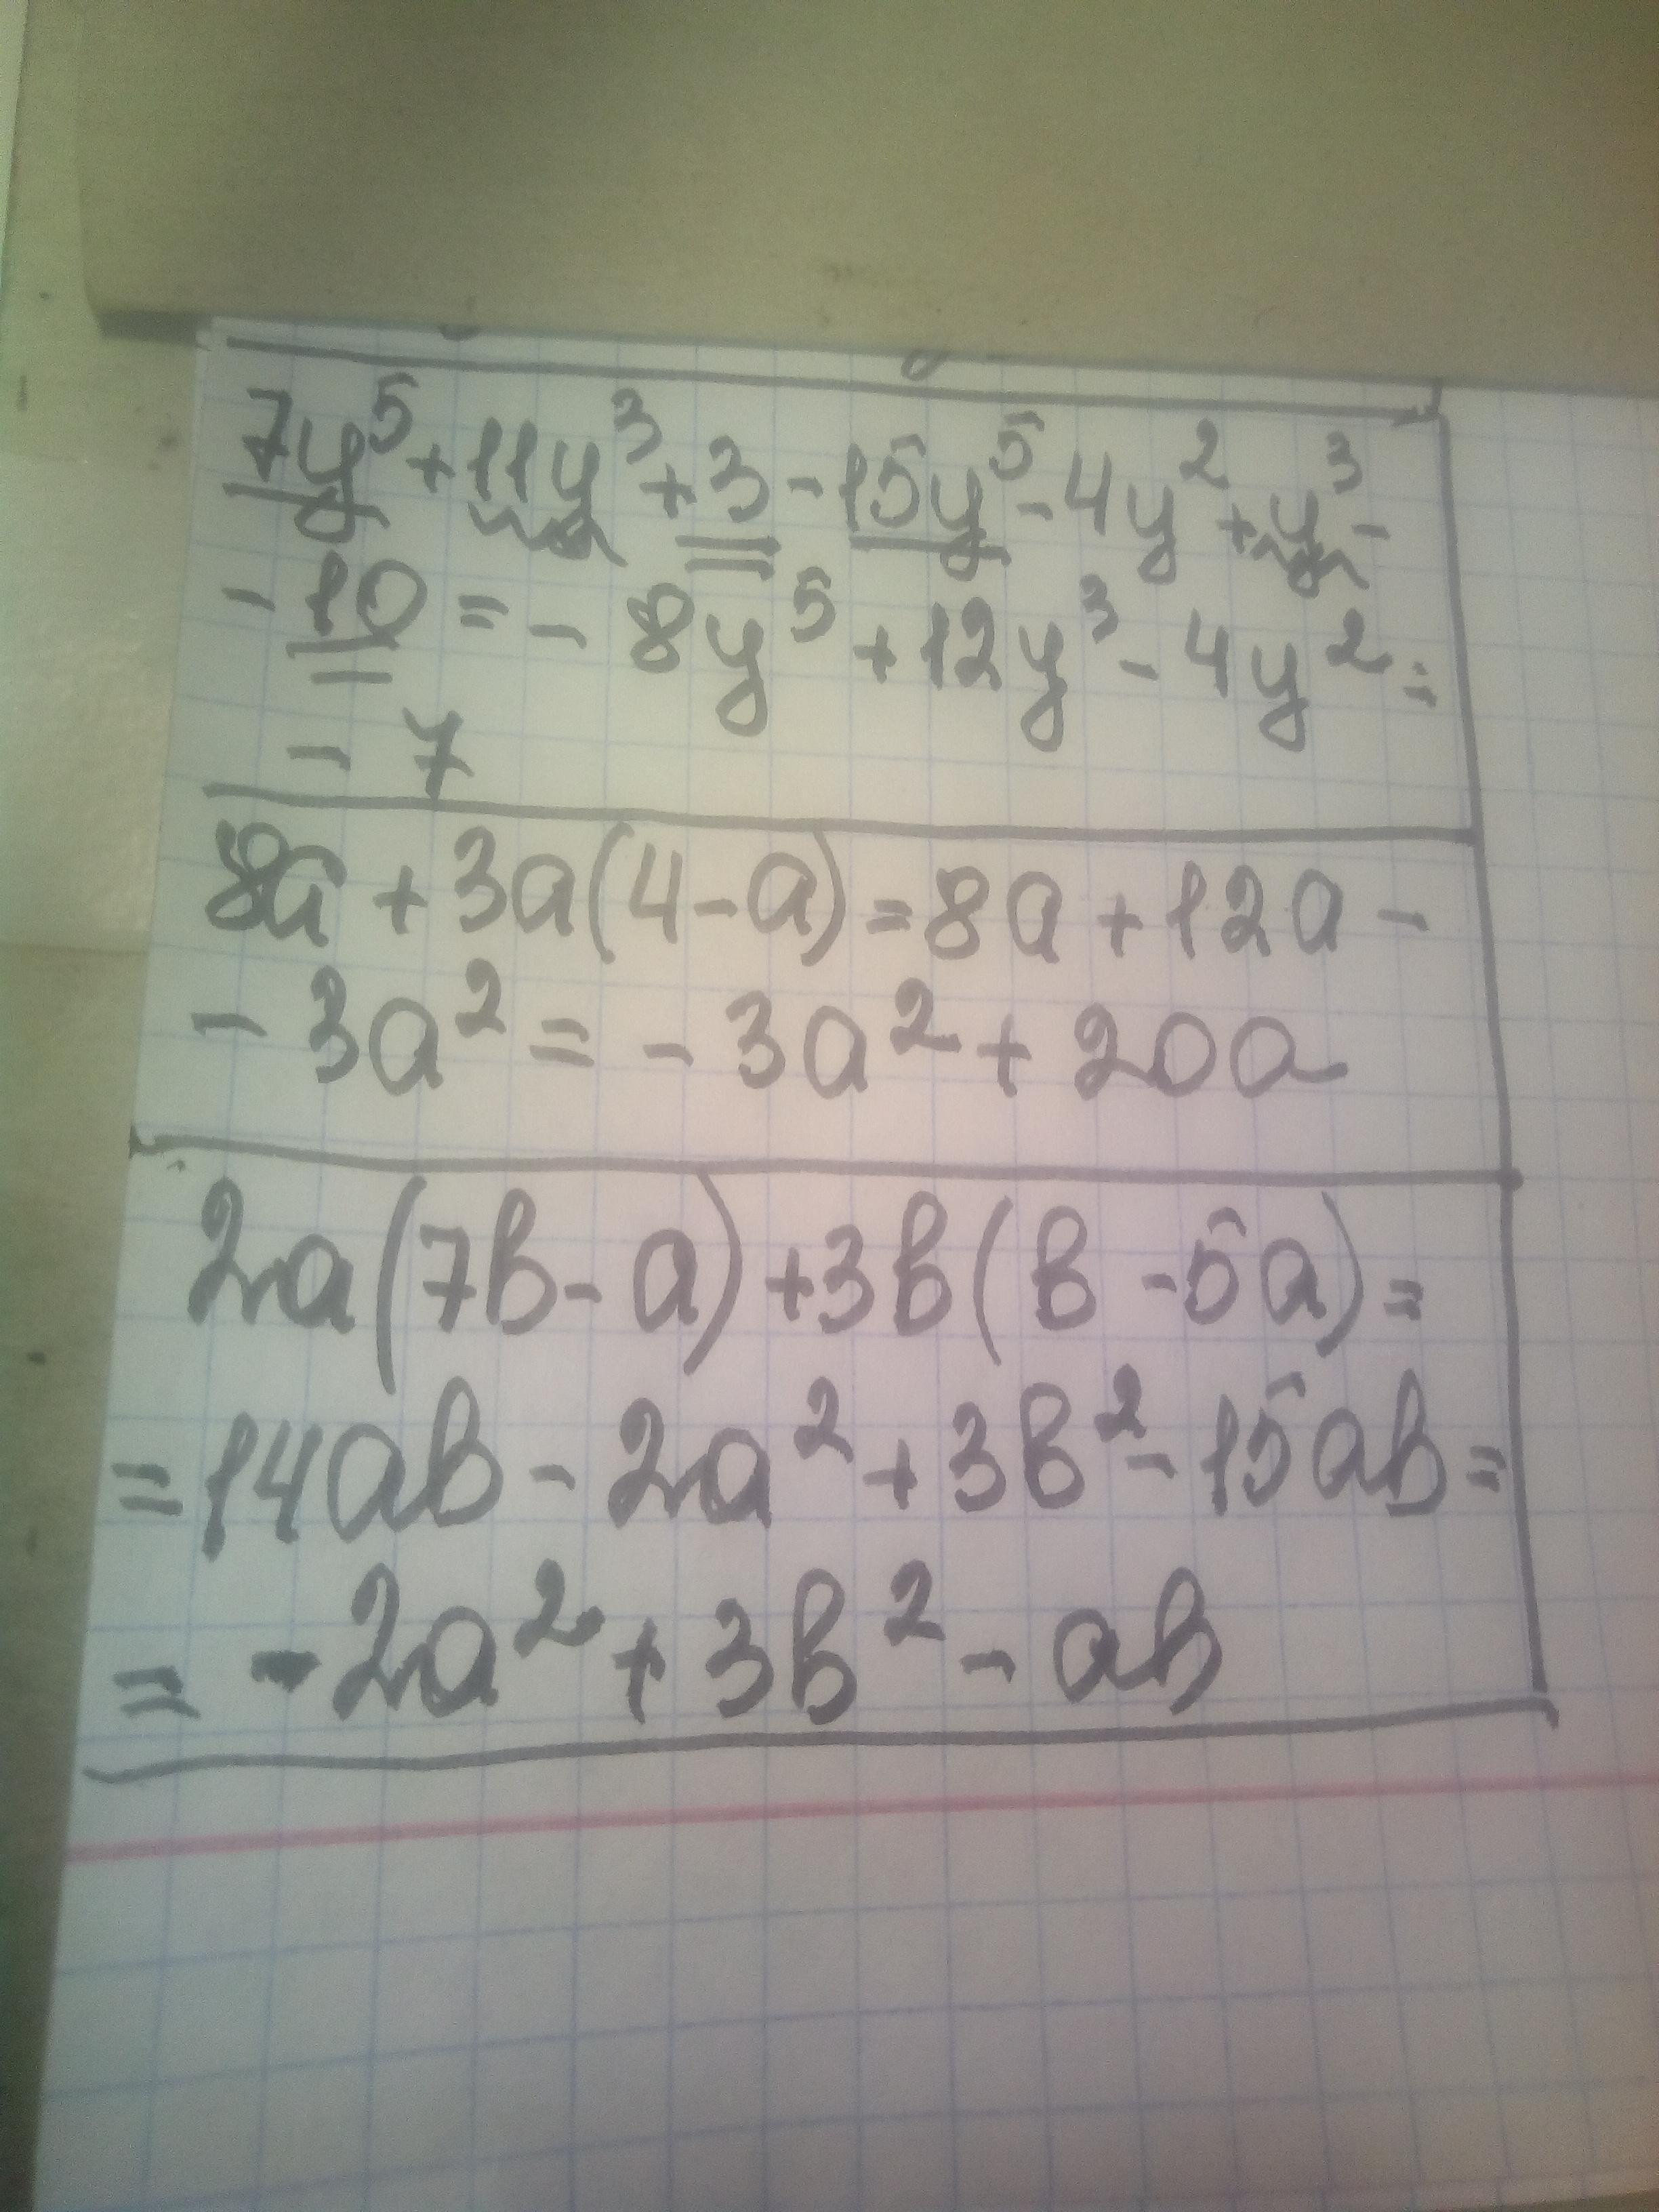 7y⁵+11y³+3-15y⁵-4y²+y³-
-10=-8y⁵+12y³-4y²=
-7
8a+3a(4-a)=8a+12a-
-3a²=-3a²+20a
2a(7в-a)+3в(в-5a)=
=14aв-2a²+3в²-15aв=
=-2a²+3в²-aв